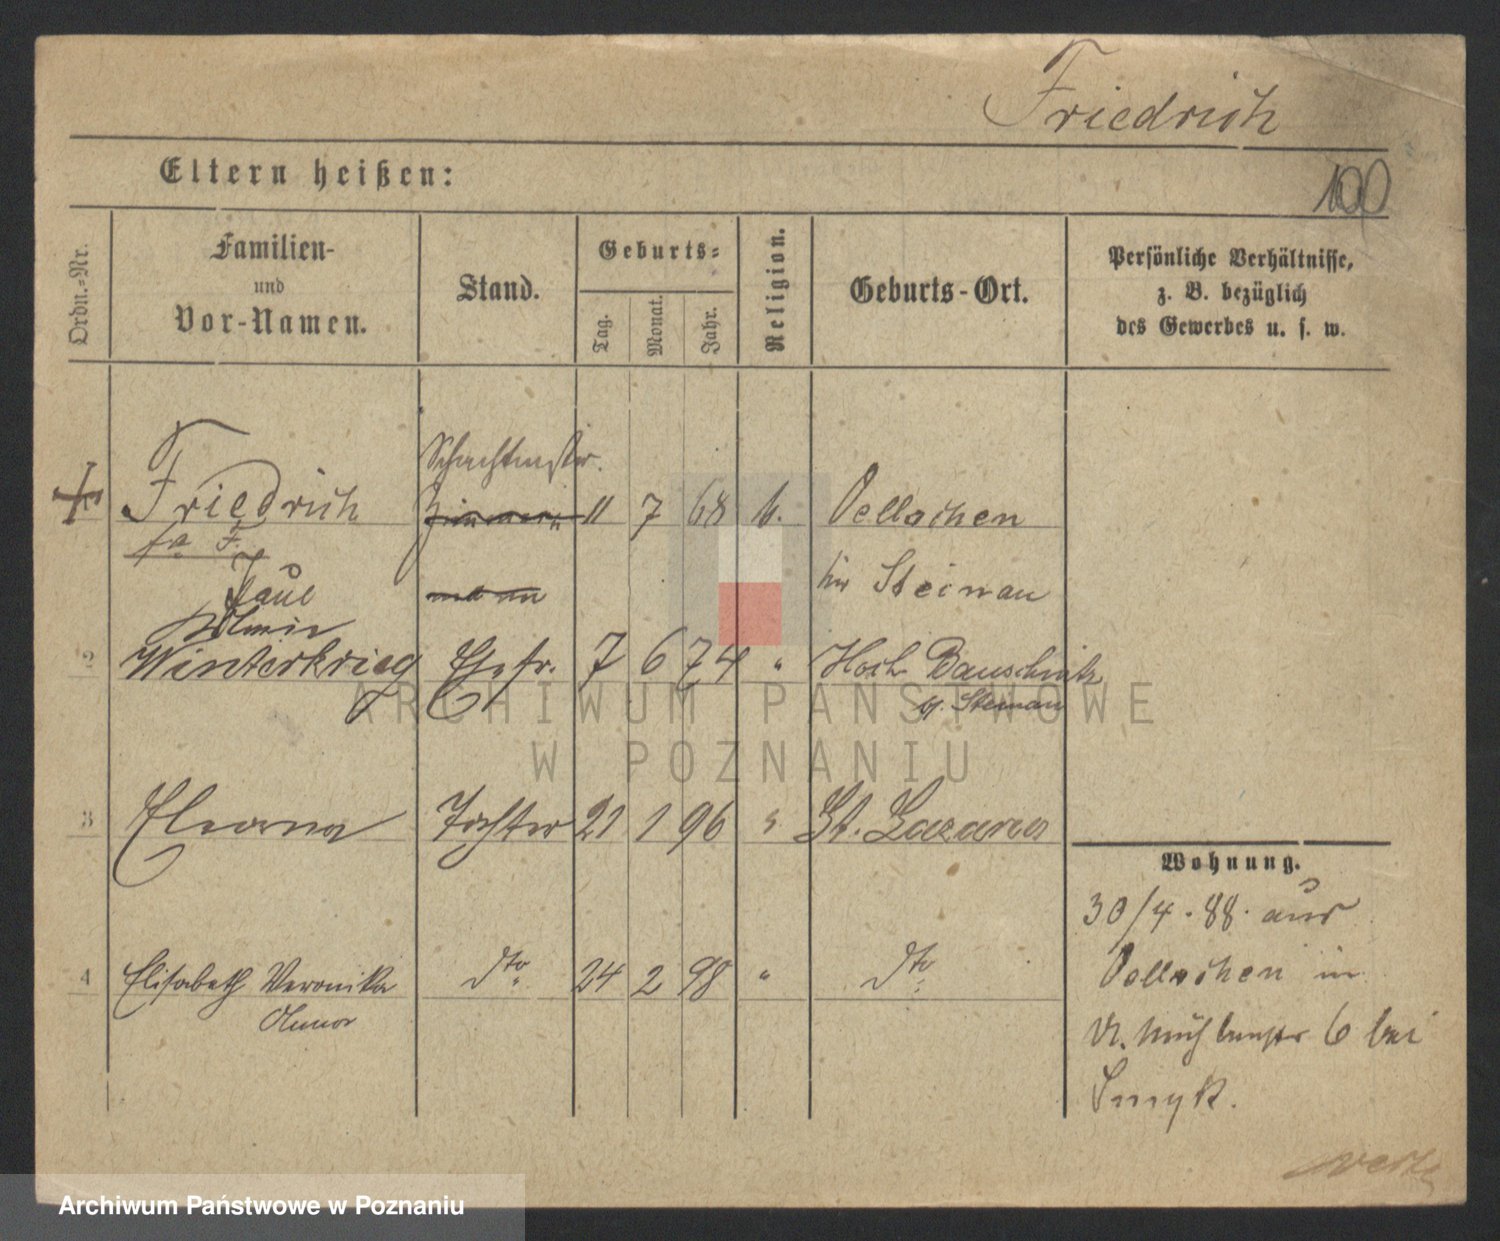 Friedrich
100
Eltern heißen:
Ordn.-Nr.
Familien-
und
Vor-Namen.
Stand.
Geburts-
Tag.
Monat.
Jahr.
Religion.
Geburts-Ort.
Persönliche Verhältnisse,
z. B. bezüglich
des Gewerbes u. s. w.
Schachtmstr.
Friedrich Zimmerm 11 7 68 k. Oellschen
Paul mann bei Steinau
2 Winterkrieg Ehefr. 7 6 74 " Hoch Bauschwitz
Steinau
3 Tochter 21 1 96 " St. Lazarus
4 Elisabeth Veronika dto 24 2 98 " dto
Wohnung.
30/4. 88. aus
Oellschen in
6 bei
Smyk.
ARCHIWUM PAŃSTWOWE
W POZNANIU
Archiwum Państwowe w Poznaniu